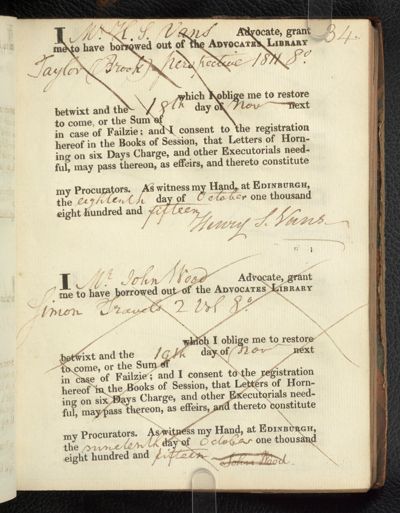 34.
I Mr H. S. Vans Advocate, grant
me to have borrowed out of the ADVOCATES LIBRARY
Taylor (Brook) Perspective 1811 8o
which I oblige me to restore
betwixt and the 18th day of Nov next
to come, or the Sum of
in case of Failzie; and I consent to the registration
hereof in the Books of Session, that Letters of Horn-
ing on six Days Charge, and other Executorials need-
ful, may pass thereon, as effeirs, and thereto constitute
my Procurators. As witness my Hand, at EDINBURGH,
the eighteenth day of October one thousand
eight hundred and fifteen
Henry S. Vans
I Mr. John Wood Advocate, grant
me to have borrowed out of the ADVOCATES LIBRARY
Simon Travels 2 Vol 8o
which I oblige me to restore
betwixt and the 19th day of Nov next
to come, or the Sum of
in case of Failzie; and I consent to the registration
hereof in the Books of Session, that Letters of Horn-
ing on six Days Charge, and other Executorials need-
ful, may pass thereon, as effeirs, and thereto constitute
my Procurators. As witness my Hand, at EDINBURGH,
the nineteenth day of October one thousand
eight hundred and fifteen
John Wood.